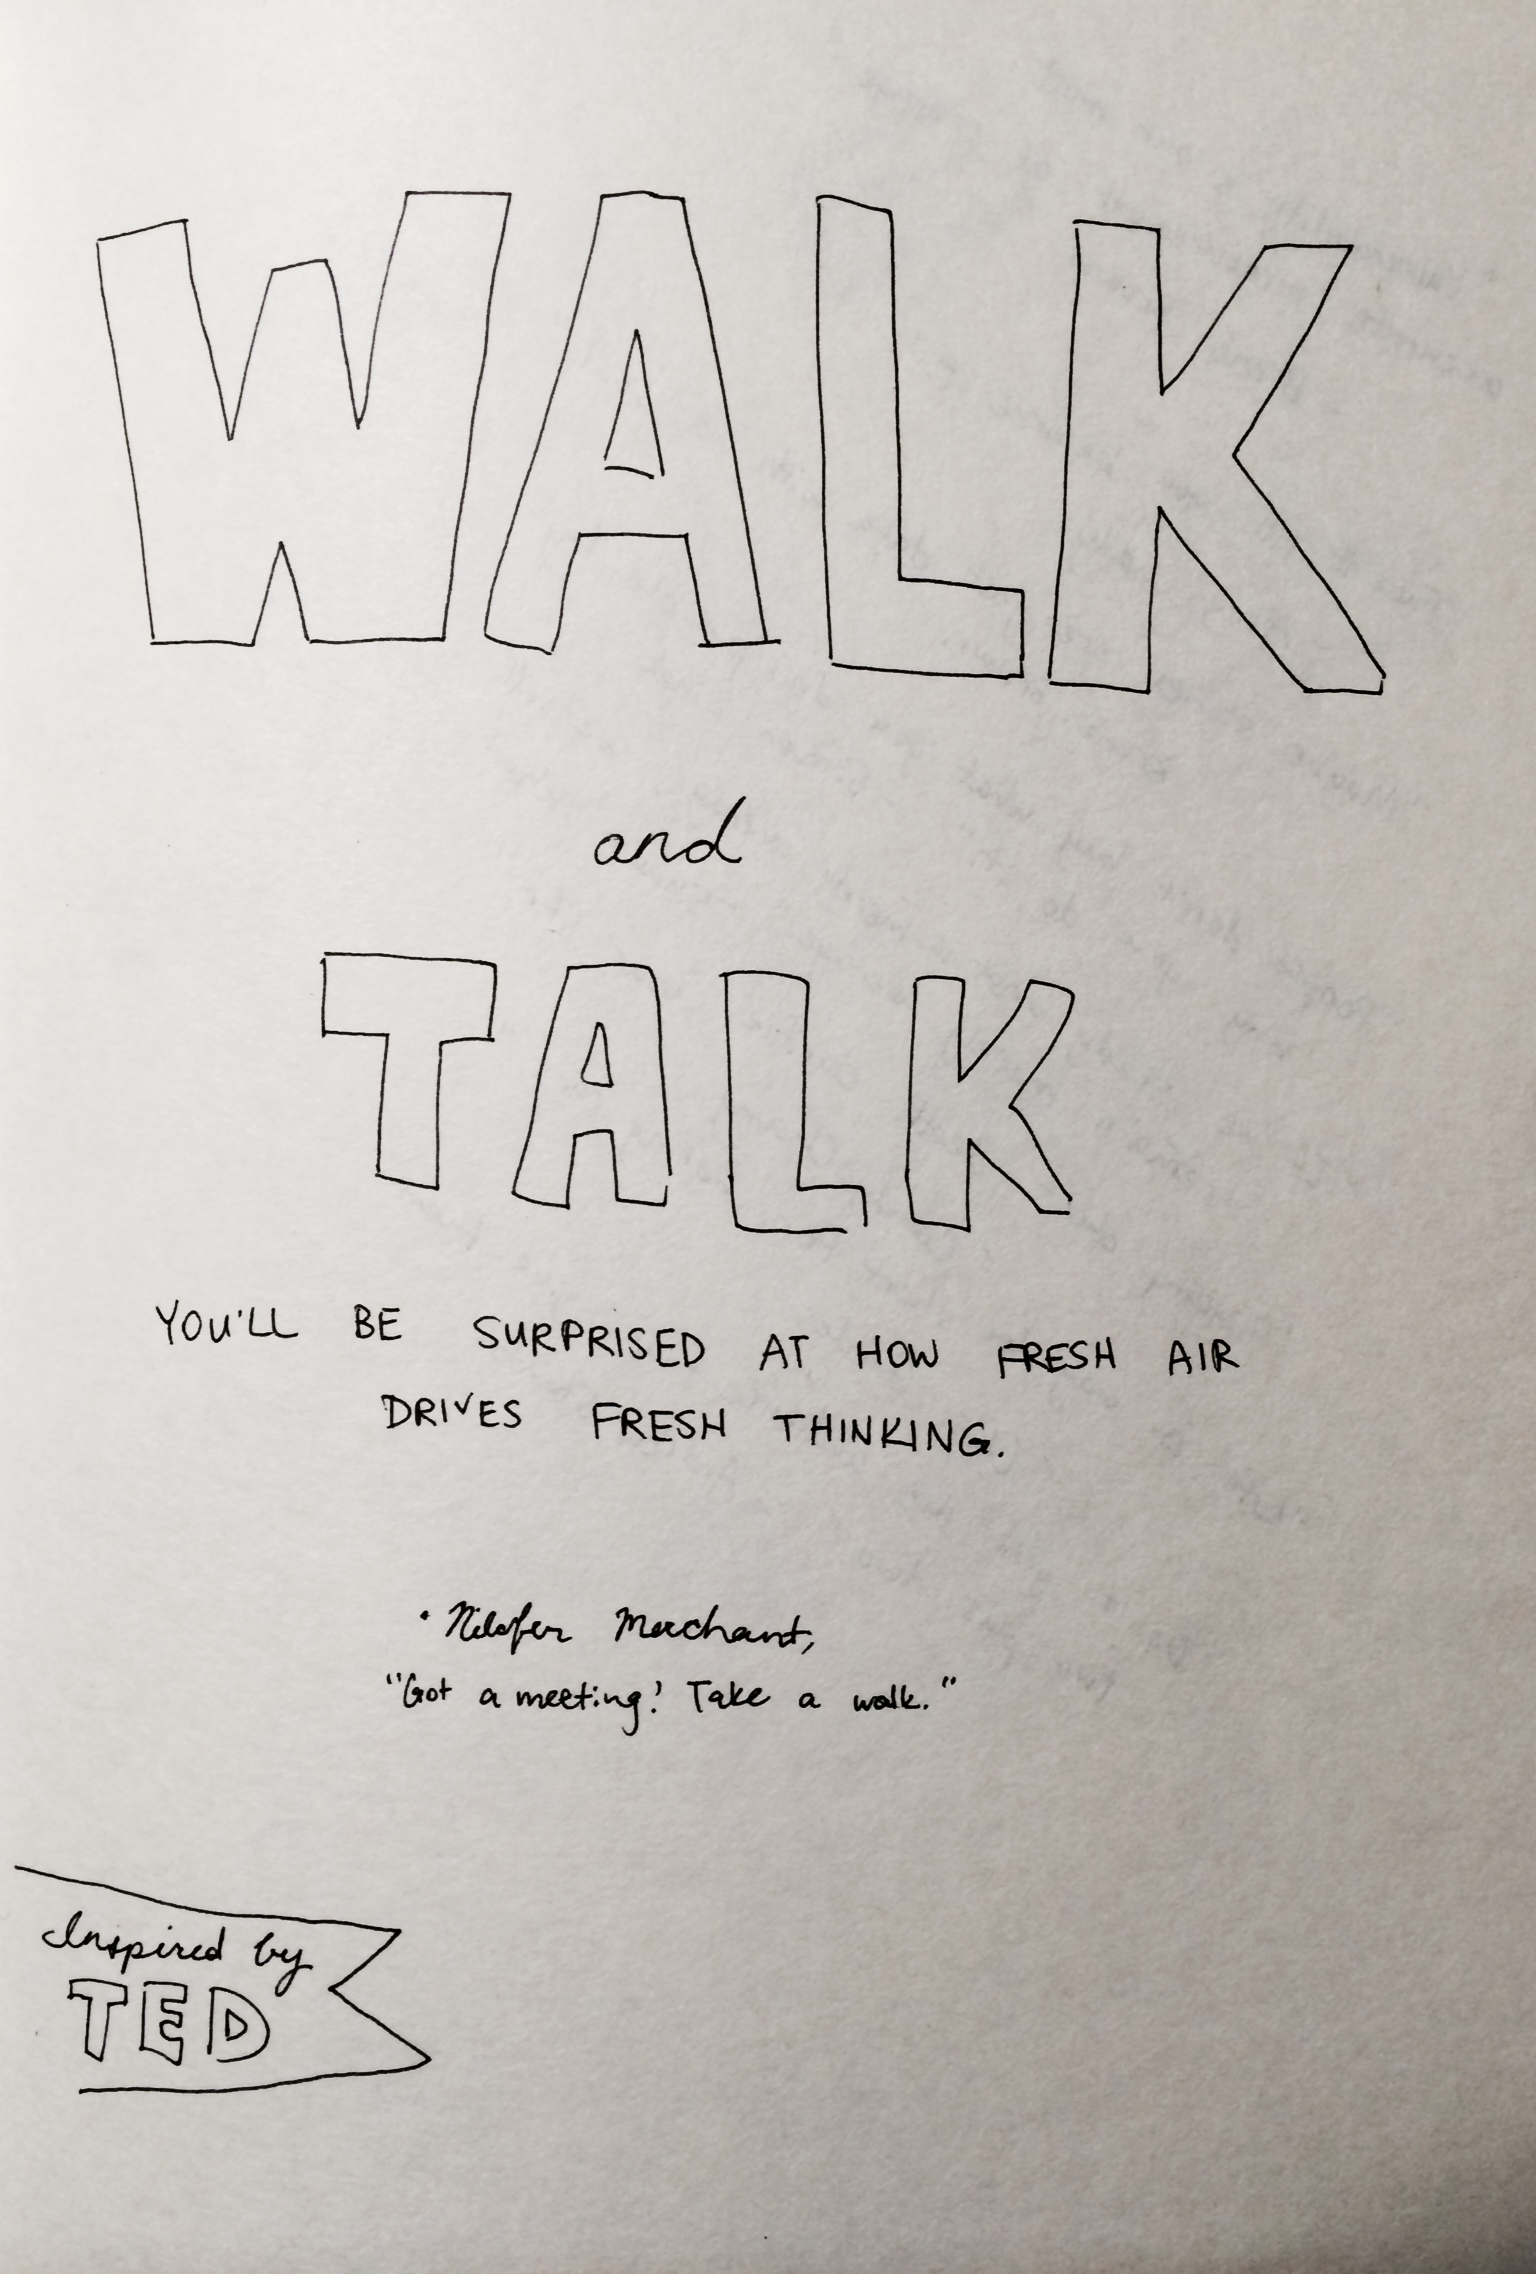 WALK
and
TALK
YOU'LL BE SURPRISED AT HOW FRESH AIR
DRIVES FRESH THINKING.
• Nilofer Merchant,
"Got a meeting? Take a walk."
Inspired by
TED